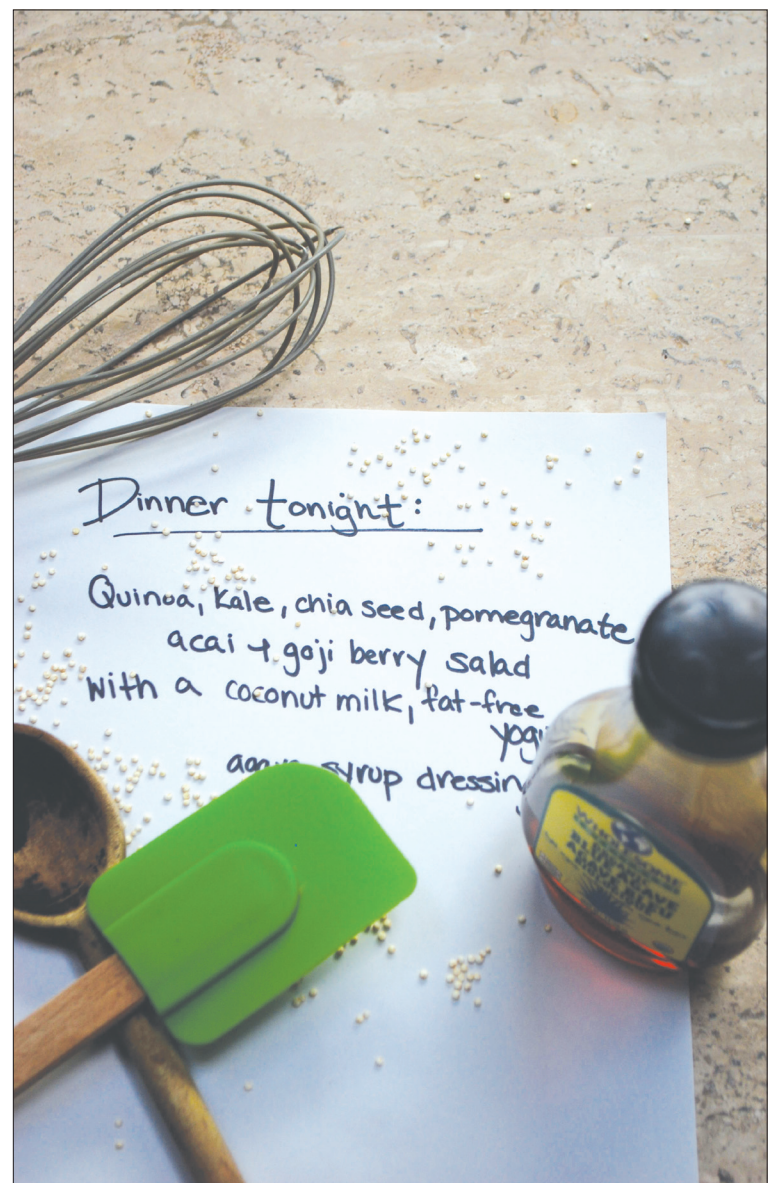 Dinner tonight:
Quinoa, kale, chia seed, pomegranate
acai + goji berry salad
with a coconut milk, fat-free
syrup
BLUE AGAVE